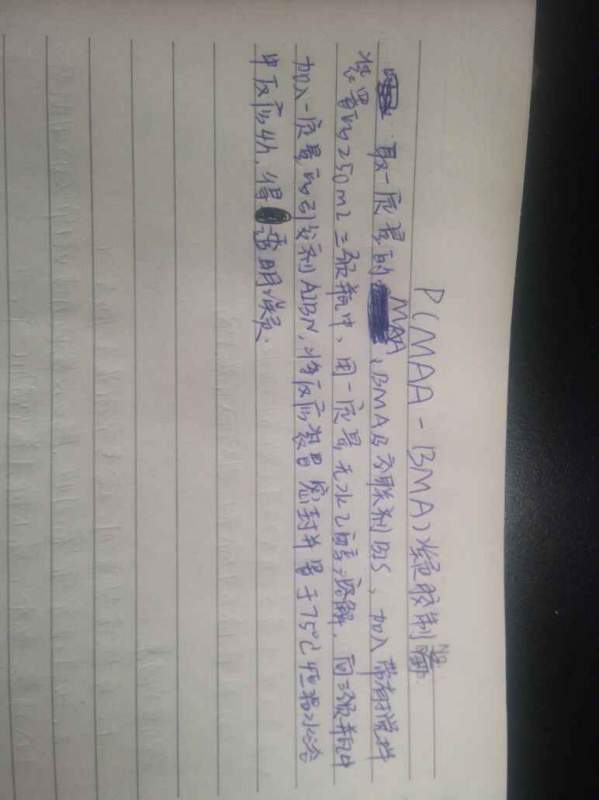 P(MAA-BMA)凝胶制备
取一质量的MAA、BMA及交联剂BIS、加入带有搅拌
装置的250mL三颈瓶中,用一质量无水乙醇溶解,向三颈瓶中
加入一质量的引发剂AIBN,将反应装置密封并置于75℃恒温水浴
中反应4h,得透明凝胶.